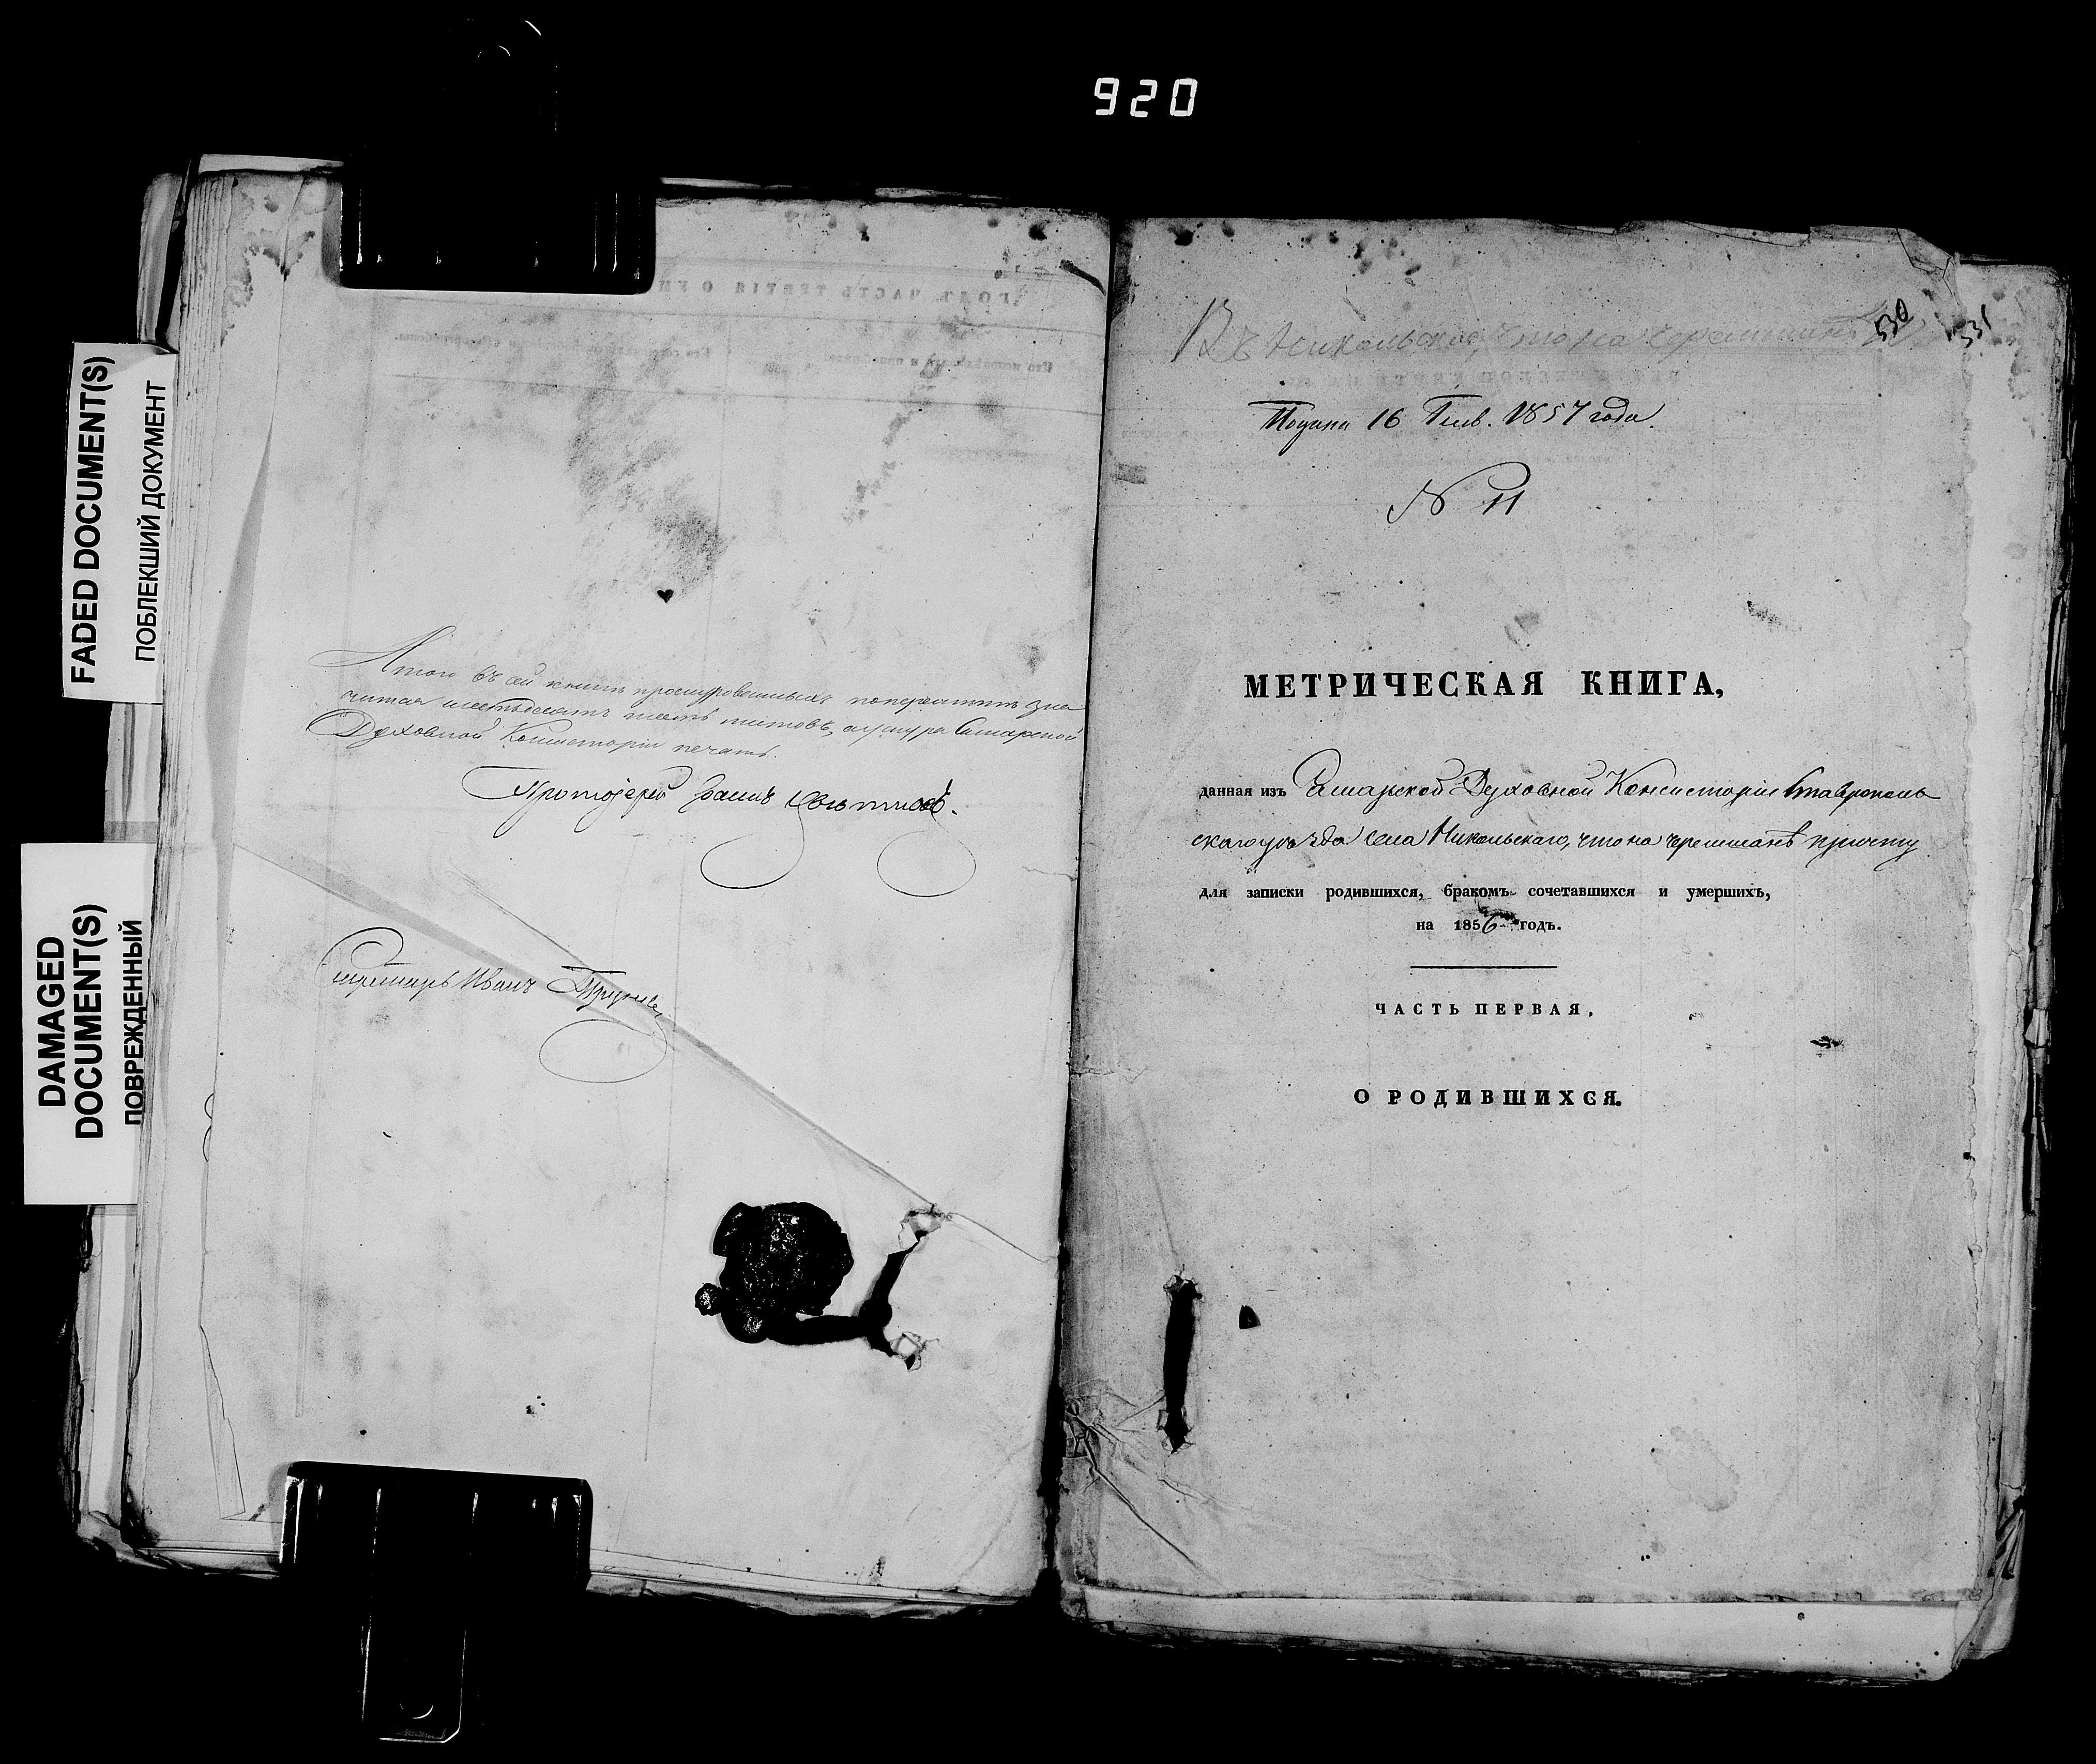 920
FADED DOCUMENT(S)
ПОБЛЕКШИЙ ДОКУМЕНТ
DAMAGED
DOCUMENT(S)
ПОВРЕЖДЕННЫЙ
въ сей книгѣ прошнурованныхъ
шестьдесятъ шесть листовъ, а у шнура Самарской
Духовной Консисторіи печать.
Протоіерей Іоаннъ
Секретарь Иванъ
Въ Никольское, что на Черемшанѣ
530
531
Подана 16 Генв. 1857 года.
N 11
МЕТРИЧЕСКАЯ КНИГА,
данная изъ Самарской Духовной Консисторіи Ставрополь
скаго уѣзда села Никольскаго, что на Черемшанѣ причту
для записки родившихся, бракомъ сочетавшихся и умершихъ,
на 1856 годъ.
ЧАСТЬ ПЕРВАЯ,
О РОДИВШИХСЯ.